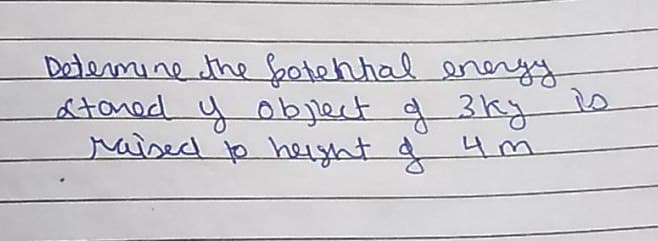 Determine the potential energy
stored if object of 3kg is
raised to height of 4 m